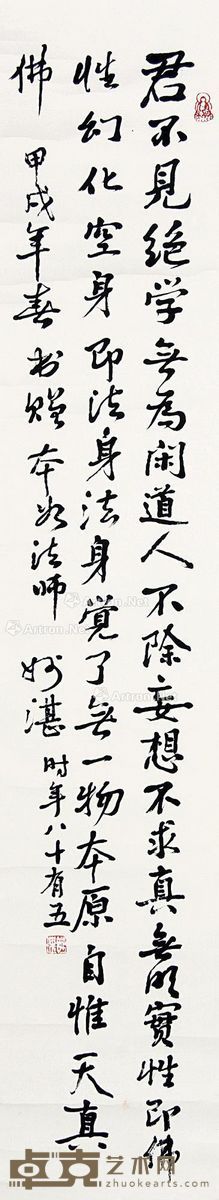 君不見绝学無為閑道人不除妄想不求真無明實性即佛
性幻化空身即法身法身覚了無一物本原自惟天真
佛 甲戌年春 书赠 本如法师 妙湛 时年八十有五
Artron.Net
Artron.Net
卓克艺术网
www.zhuokearts.com